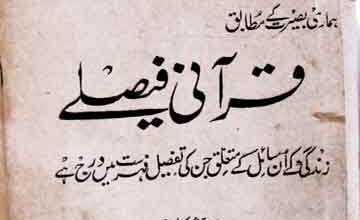 ہماری بصیرت کے مطابق
قرآنی فیصلے
زندگی کے اُن مسائل کے متعلق جن کی تفصیل فہرست میں درج ہے